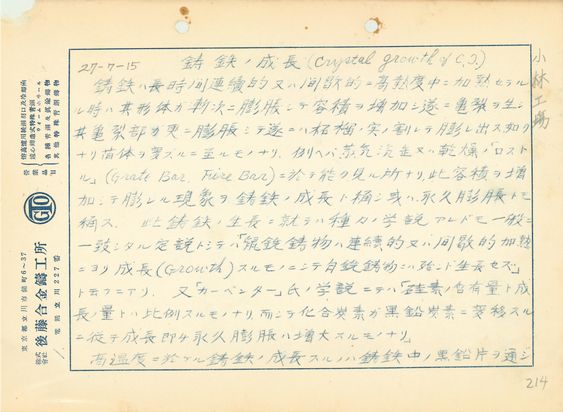 27-7-15 鋳鉄ノ成長 (Crystal growth of C.I.)
鋳鉄ハ長時間連続的又ハ间歇的ニ高熱度中ニ加熱セラル
ル時ハ其形体ガ漸次ニ膨脹シテ容積ヲ増加シ遂ニ亀裂ヲ生シ
其亀裂部ガ更ニ膨脹シテ遂ニハ柘榴ノ実ノ割レテ膨レ出ス如ク
ナリ
至ルモノナリ、例ヘバ蒸気汽缶又ハ乾燥ノ「ロスト
ル」(Grate Bar, Fire Bar)ニ於テ能ク見ル所ナリ、此容積ヲ増
加シテ膨レル現象ヲ鋳鉄ノ成長ト稱シ或ハ永久膨脹トモ
稱ス、此鋳鉄ノ生長ニ就テハ種々ノ学説アレドモ一般ニ
一致シタル定説トシテハ「鼠銑鋳物ハ連続的又ハ间歇的加熱
ニヨリ成長(Growth)スルモノニシテ白銑鋳物ハ殆ンド生長セズ」
ト云フニアリ、又「カーペンター」氏ノ学説ニテハ「珪素ノ含有量ト成
長ノ量トハ比例スルモノナリ、而シテ化合炭素ガ黒鉛炭素ニ変移スル
ニ従テ成長即チ永久膨脹ハ増大スルモノナリ」
高温度ニ於ケル鋳鉄ノ成長スルノハ鋳鉄中ノ黒鉛片ヲ通シ
小林工場
214
営業品目
各種特殊合金鋳物
GTO
株式會社 後藤合金鑄工所
東京都立川市錦町6~37
電話立川227番